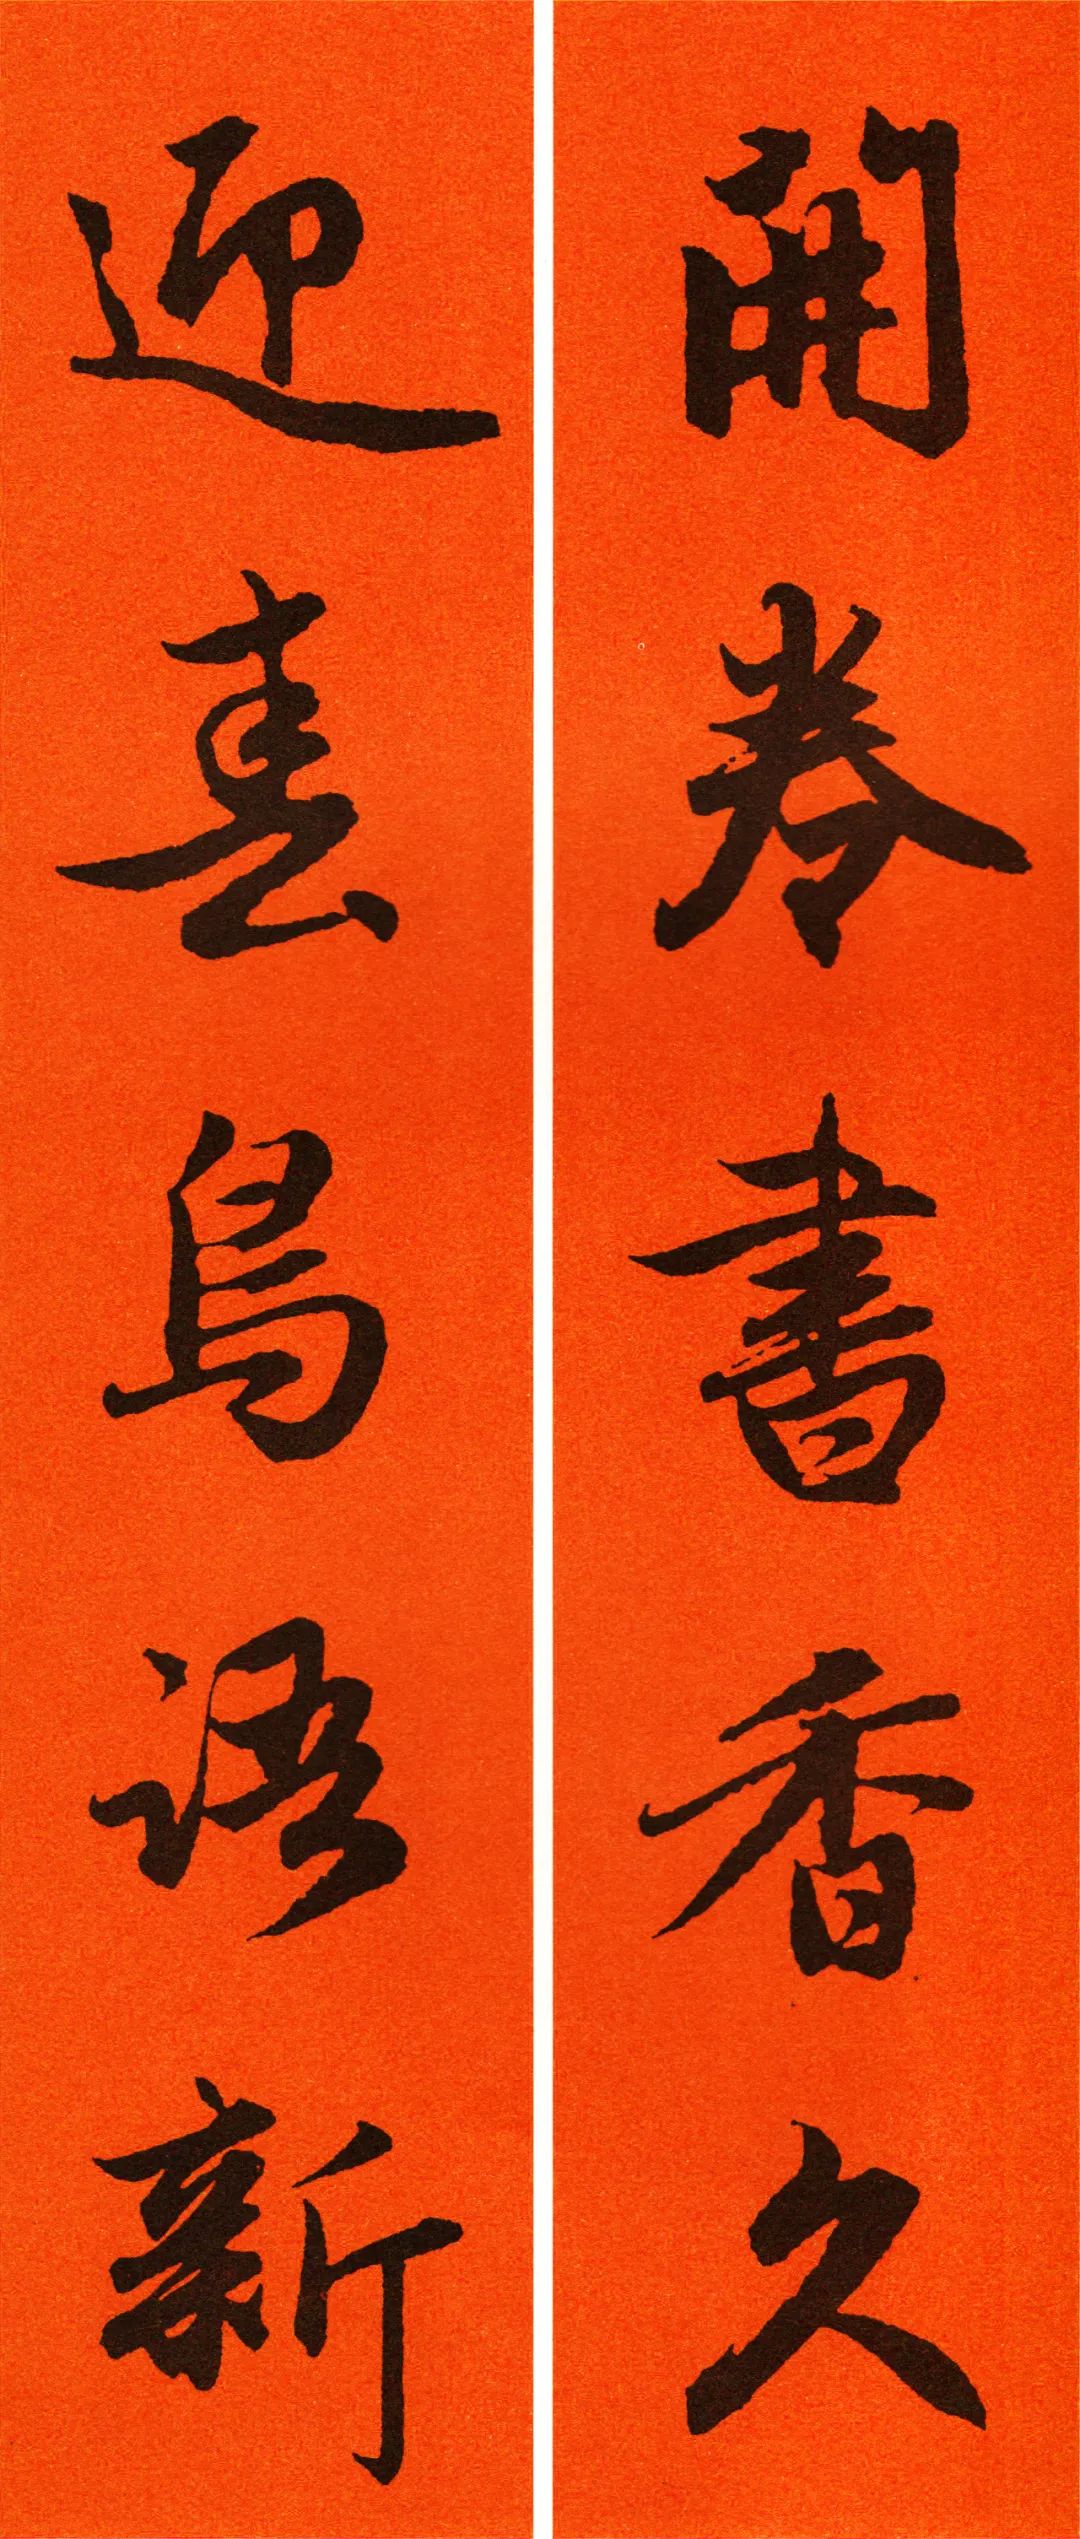 開卷書香久
迎春鳥語新